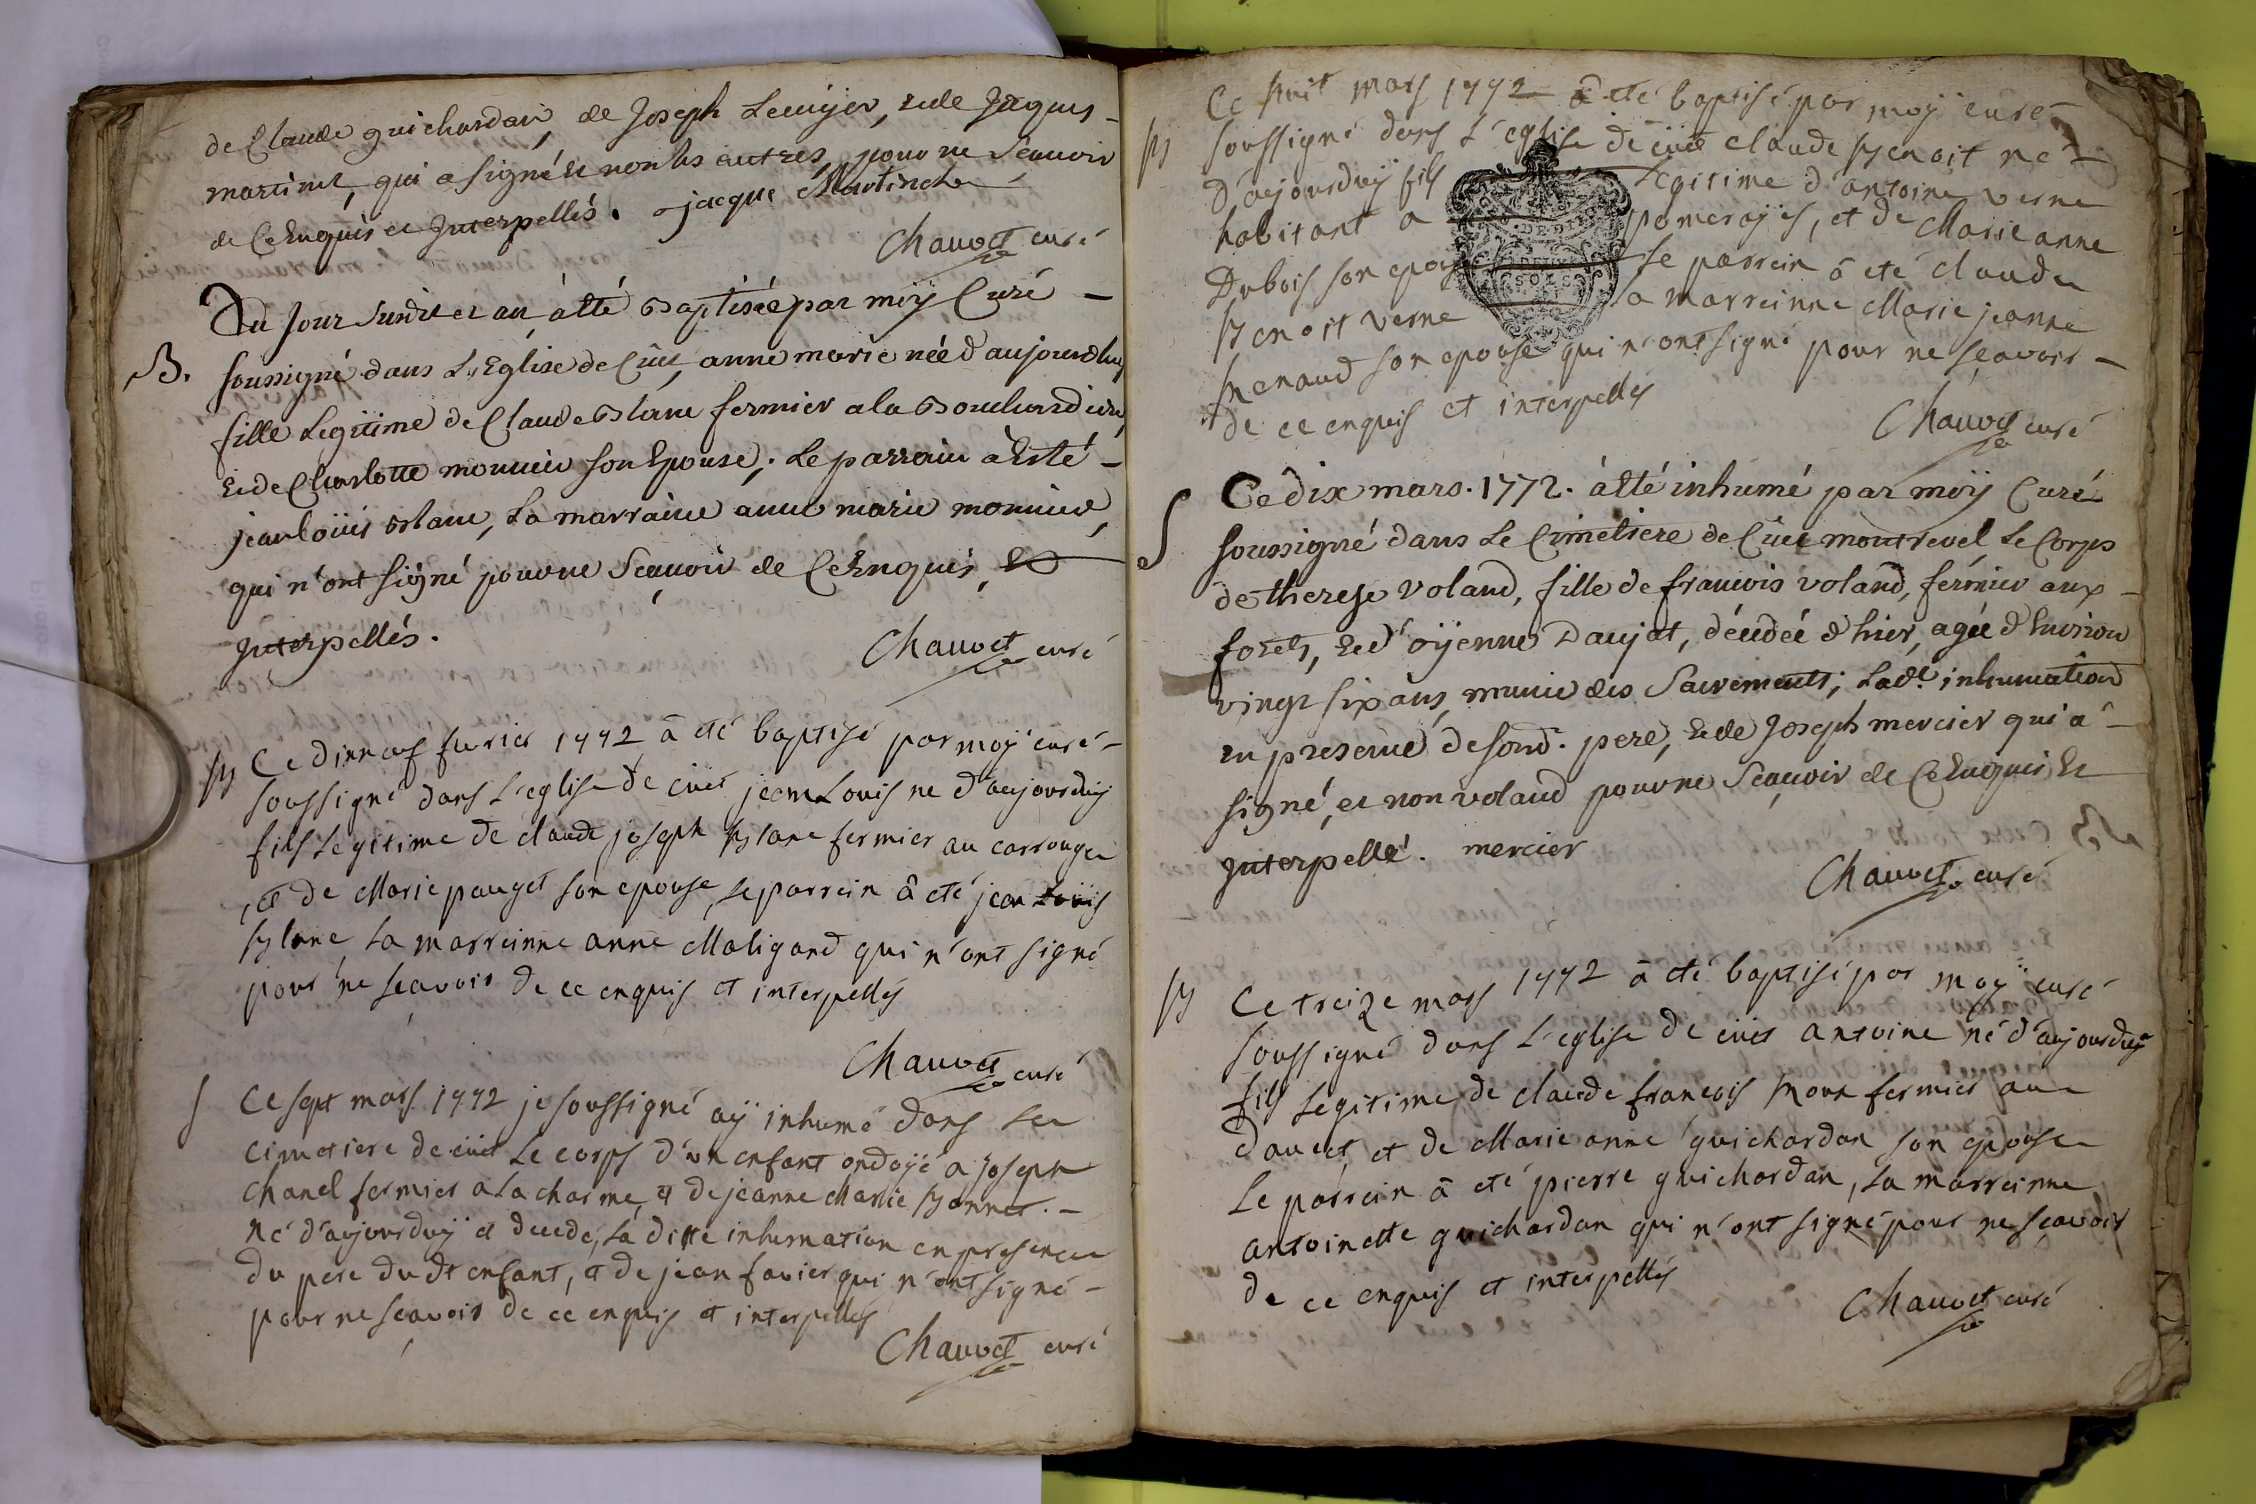 de Claude guichardan, de Joseph Leuyer, et de Jaques
martinet, qui a signé et non les autres, pour ne Sçauoir
de Ce Enquis et Interpellés. jacque Martinet
Chauvet curé
Du Jour Susdit et an, à été Baptisée par moÿ Curé
B. soussigné dans L'Eglise de Cüet, anne marie née d'aujourdhuy
fille Legitime de Claude Blanc fermier a la Bouchardiere,
et de Charlotte monnier son Epouse; Le parrain à Esté
jean loüis Blanc, La marraine anne marie monnier,
qui n'ont signé pour ne Sçauoir de Ce Enquis, Et
Interpellés.
Chauvet curé
B Ce dinneuf fevrier 1772 â eté baptisé par moÿ curé
soussigné dans L'eglise de cüet jean Louis ne d'aujourduy
fils Legitime de claude joseph Blanc fermier au carrouge
, et de Marie pauget son epouse, Le parrein â eté jean Loüis
Blanc La marreinne anne Maligand qui n'ont signé
pour ne sçavoir de ce enquis et interpellés
Chauvet curé
S Ce sept mars 1772 je soussigné aÿ inhumé dans Le
cimetiere de cüet Le corps d'un enfant ondoÿé a joseph
chanel fermier a La charme, et de jeanne Marie Bonnet.
Né d'aujourduÿ et decedé, La ditte inhumation en presence
du pere dudt enfant, et de jean favier qui n'ont signé
pour ne sçavoir de ce enquis et interpellés
Chauvet curé
Ce huit mars 1772 â eté baptisé par moÿ curé
B soussigné dans L'eglise de cüet claude Benoit né
d'aujourduÿ fils Legitime d'antoine verne
habitant a pomeroÿes, et de Marie anne
Dubois son epouse Le parrein â eté claude
Benoit verne La marreinne Marie jeanne
Renaud son epouse qui n'ont signé pour ne sçavoir
de ce enquis et interpellés
Chauvet curé
S Ce dix mars. 1772. à été inhumé par moÿ Curé
soussigné dans Le Cimetiere de Cüet montrevel, Le Corps
de therese Voland, fille de francois voland, fermier aux
forets, et d'oÿenne Daujat, décédée d'hier, agée d'Environ
vingt six ans, munie des Sacrements; Lade. inhumation
en presence de sond. pere, et de Joseph mercier qui a
signé, et non voland pour ne Sçauoir de Ce Enquis Et
Interpellé. mercier
Chauvet curé
B Ce treize mars 1772 â eté baptisé par moÿ curé
soussigné dans L'eglise de cüet antoine né d'aujourduÿ
fils Legitime de claude francois Mour fermier au
davet et de Marie anne guichardan son epouse
Le parrein â eté pierre guichardan, La marreinne
antoinette guichardan qui n'ont signé pour ne sçavoir
de ce enquis et interpellés
Chauvet curé